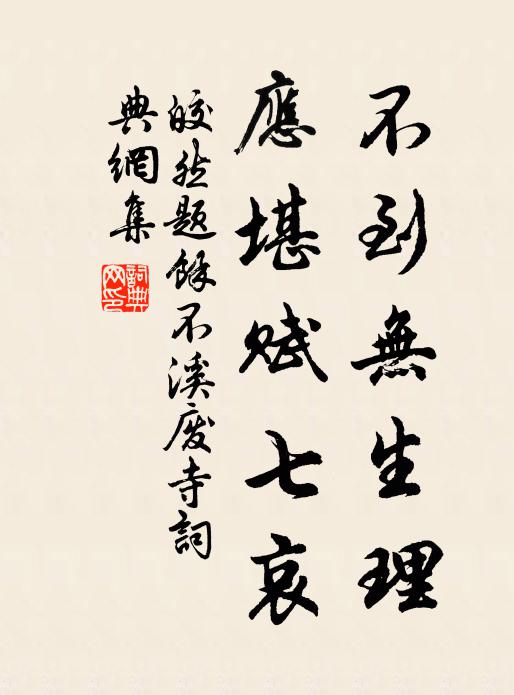 不到無生理
應堪賦七哀
皎然題餘不溪廢寺詞
典網集
詞典
网印